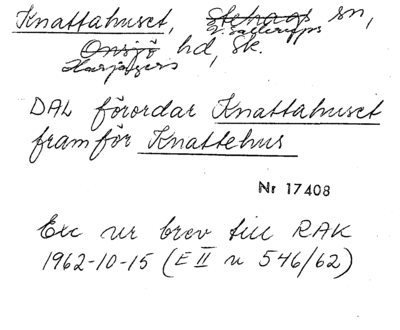 Knattahuset, Stehags sn,
V. Sallerups
Onsjö hd, Sk.
Harjagers
DAL förordar Knattahuset
framför Knattehus
Nr 17408
Exc ur brev till RAK
1962-10-15 (E II n 546/62)